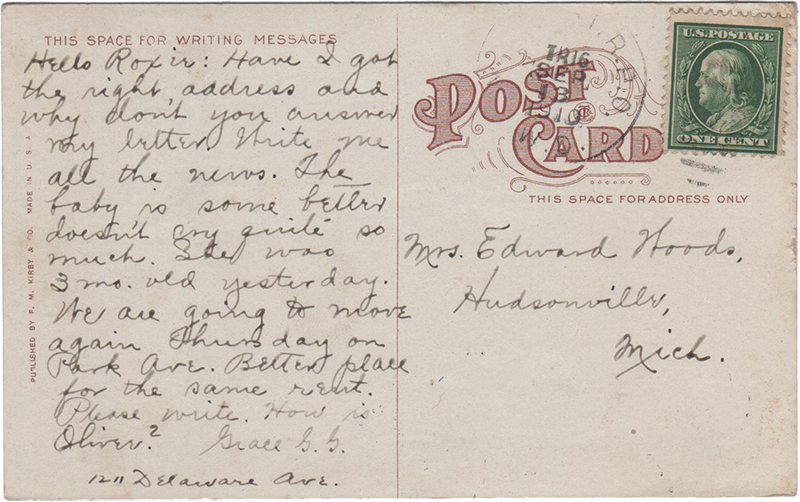 THIS SPACE FOR WRITING MESSAGES
Hello Roxie: Have I got
the right address and
why don't you answer
my letter. Write me
all the news. The
baby is some better
doesn't cry quite so
much. She was
3 mo. old yesterday.
We are going to move
again Thursday on
Park Ave. Better place
for the same rent.
Please write. How is
Oliver? Grace G. G.
1211 Delaware Ave.
PUBLISHED BY F. M. KIRBY & CO. MADE IN U. S. A
POST CARD
R.P.O.
TR16
SEP
18
1910
W.D.
U.S. POSTAGE
ONE CENT
THIS SPACE FOR ADDRESS ONLY
Mrs. Edward Woods,
Hudsonville,
Mich.